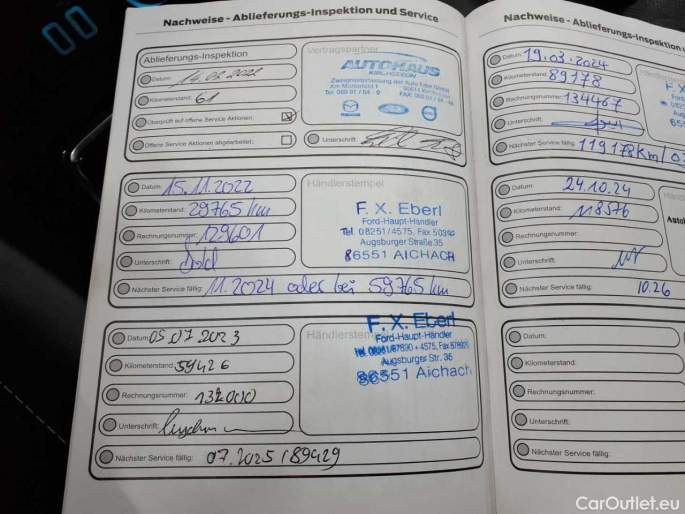 Nachweise - Ablieferungs-Inspektion und Service
Ablieferungs-Inspektion
Datum: 14.02.2022
Kilometerstand: 61
Überprüft auf offene Service Aktionen:
Offene Service Aktionen abgearbeitet:
Vertragspartner
AUTOHAUS
KIRCHSEEON
Zweigniederlassung der Auto Eder GmbH
Am Münterfeld 1
Unterschrift:
Datum: 15.11.2022
Kilometerstand: 29765 km
Rechnungsnummer: 129601
Unterschrift:
Nächster Service fällig: 11.2024 oder bei 59765 km
Händlerstempel
F. X. Eberl
Ford-Haupt-Händler
Tel 08251/4575, Fax 50390
Augsburger Straße 35
86551 AICHACH
Datum: 05 07 2023
Kilometerstand: 59426
Rechnungsnummer:
Unterschrift:
Nächster Service fällig: 07.2025 / 89429
Händlerstempel
F. X. Eberl
Ford-Haupt-Händler
Augsburger Str. 35
86551 Aichach
Nachweise - Ablieferungs-Inspektion u
Datum: 19.03.2024
Kilometerstand: 89178
Rechnungsnummer: 134467
Unterschrift:
Nächster Service fällig: 119178Km/03
F. X
Ford-Ha
Augsb
8655
Datum: 24.10.24
Kilometerstand: 118576
Rechnungsnummer:
Unterschrift:
Nächster Service fällig: 10.26
Händ
Auto
Datum:
Kilometerstand:
Rechnungsnummer:
Unterschrift:
Nächster Service fällig:
CarOutlet.eu